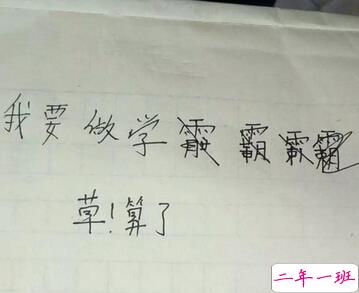 我要做学霸
草！算了
二年一班